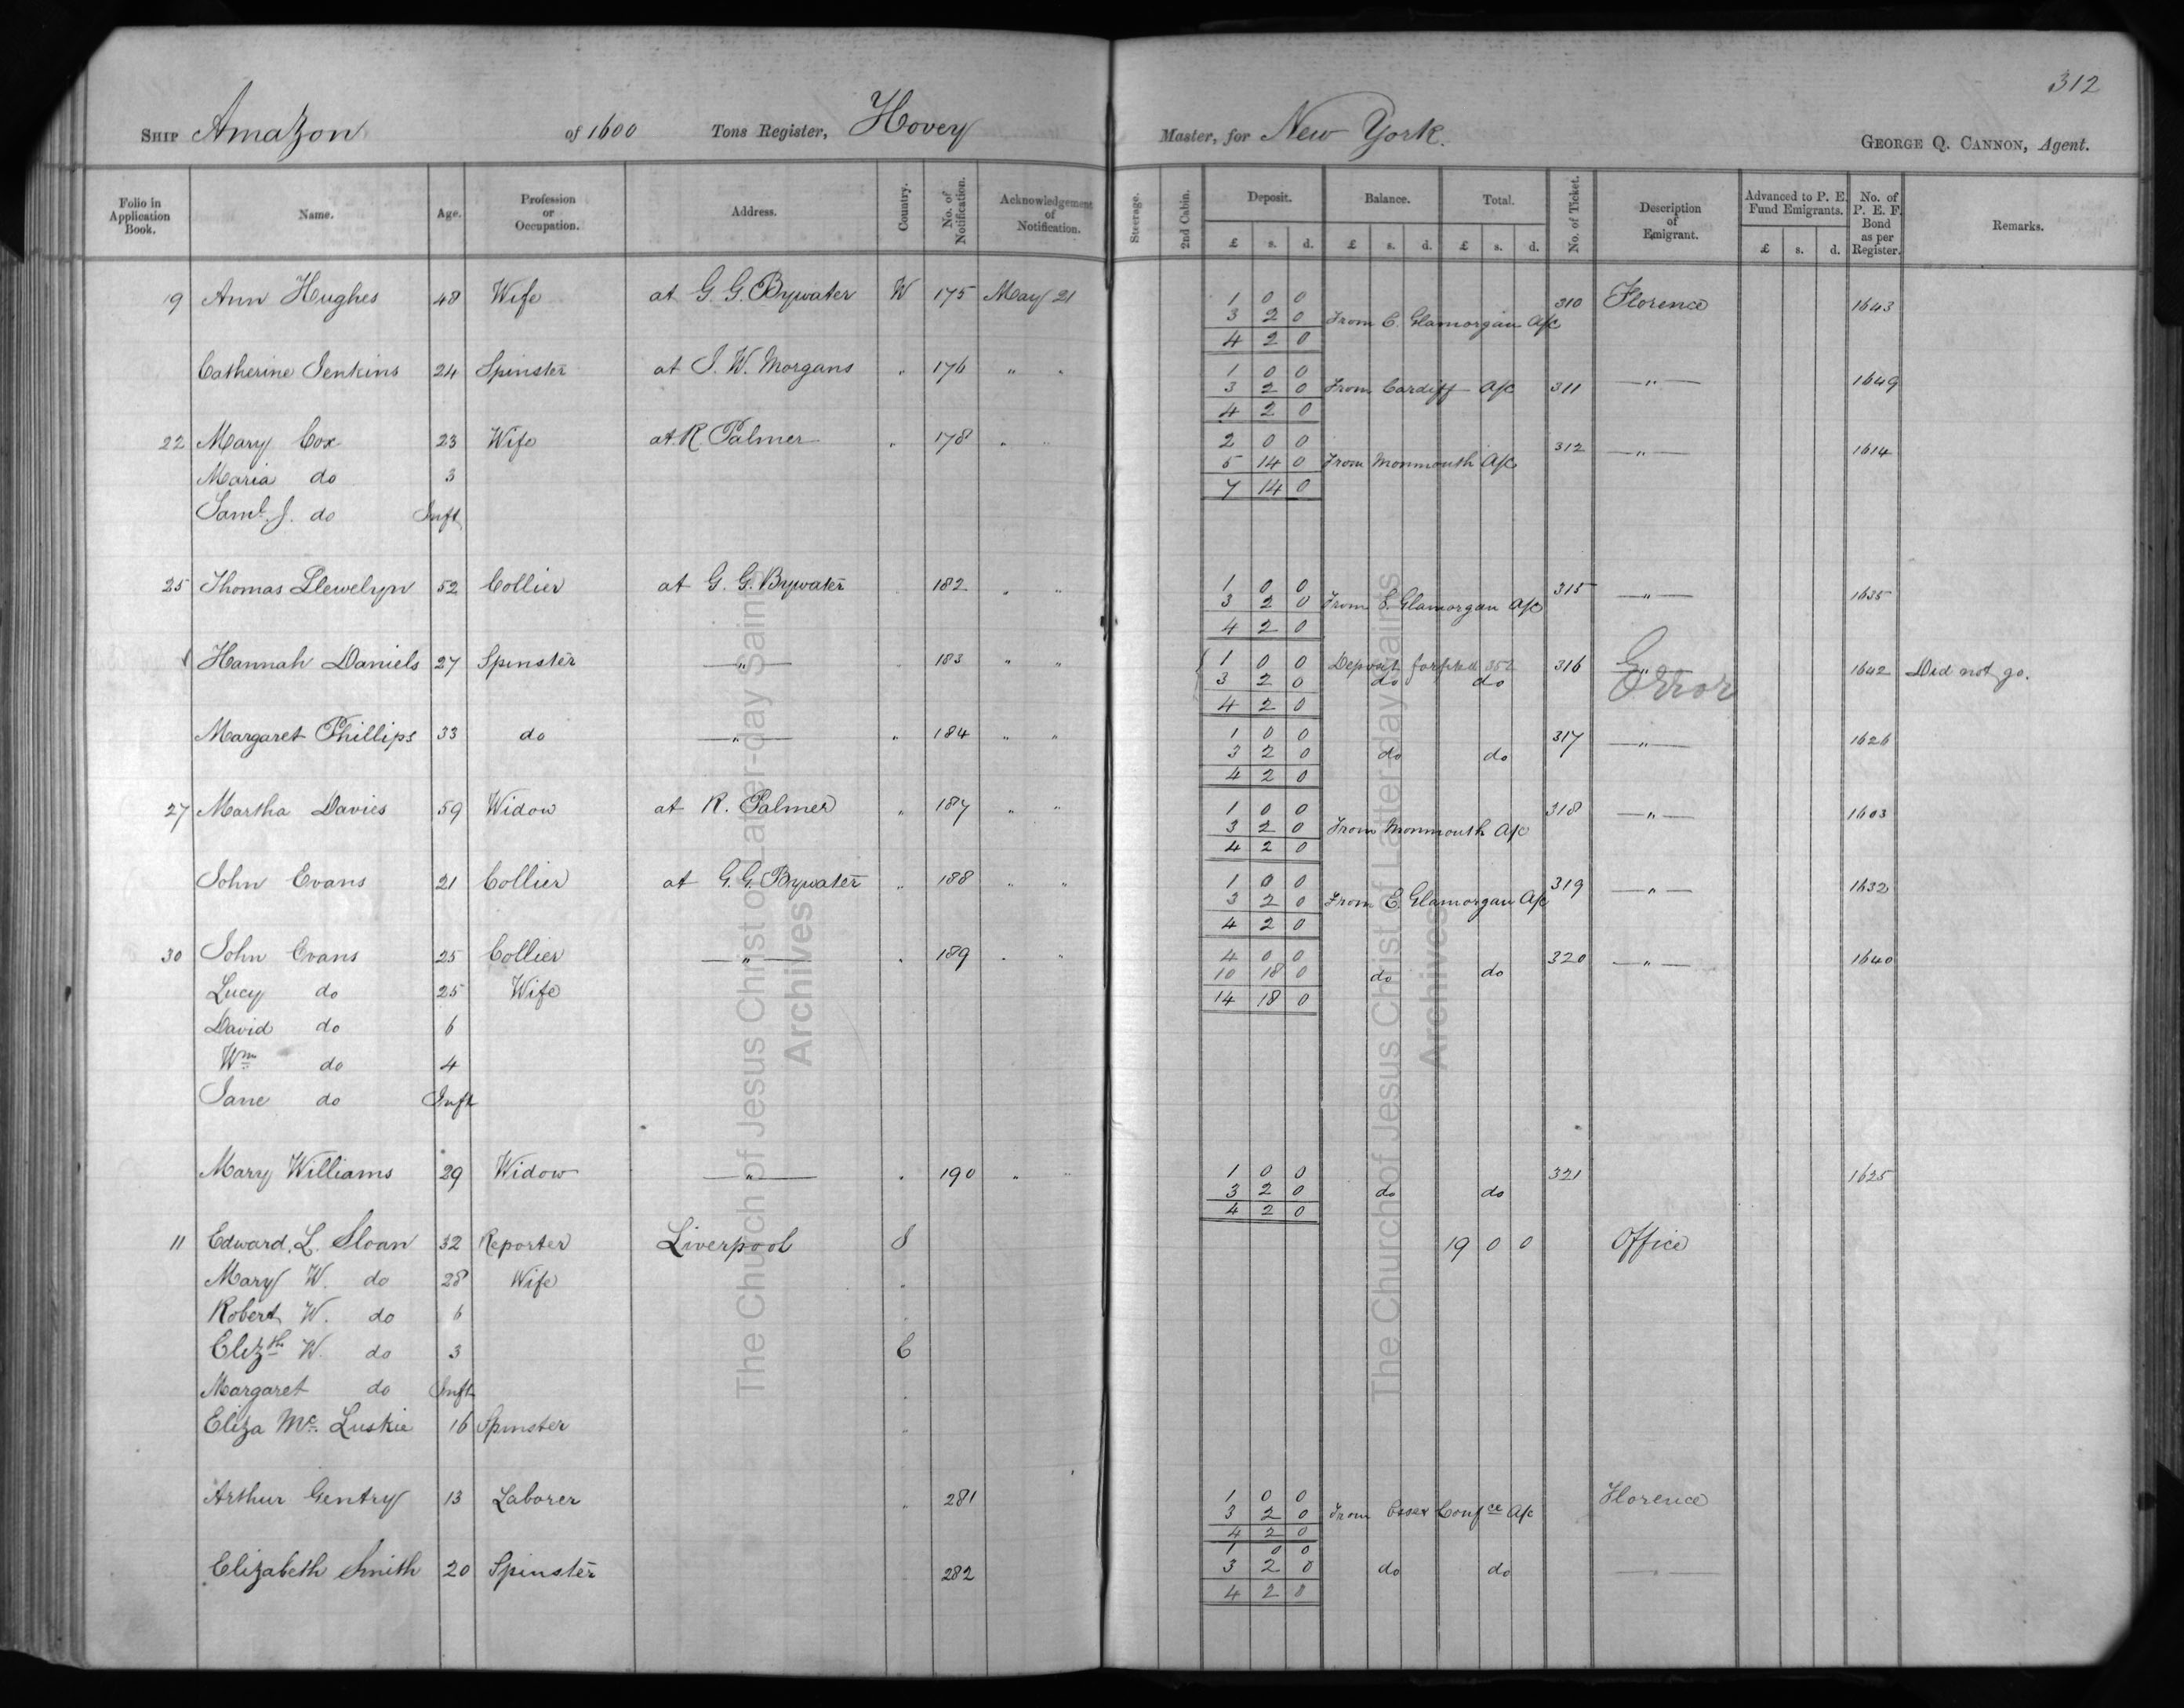 312
SHIP Amazon of 1600 Tons Register, Hovey Master, for New York. GEORGE Q. CANNON, Agent.
Folio in Application Book. Name. Age. Profession or Occupation. Address. Country. No. of Notification. Acknowledgement of Notification. Steerage. 2nd Cabin. Deposit. Balance. Total. No. of Ticket. Description of Emigrant. Advanced to P. E. Fund Emigrants. No. of P. E. F. Bond as per Register. Remarks.
£ s. d. £ s. d. £ s. d. £ s. d.
19 Ann Hughes 48 Wife at G. G. Bywater W 175 May 21 1 0 0 310 Florence 1643
3 2 0 From C. Glamorgan A/c
4 2 0
Catherine Jenkins 24 Spinster at J. W. Morgans " 176 " " 1 0 0 1649
3 2 0 From Cardiff A/c 311 "
4 2 0
22 Mary Cox 23 Wife at R. Palmer " 178 " " 2 0 0 312 " 1614
Maria do 3 5 14 0 From Monmouth A/c
7 14 0
Saml. J. do Inft
25 Thomas Llewelyn 52 Collier at G. G. Bywater 182 " " 1 0 0 315 " 1635
3 2 0 From E. Glamorgan A/c
4 2 0
Hannah Daniels 27 Spinster " 183 " " 1 0 0 Deposit forfited 352 316 " Error 1642 Did not go.
3 2 0 do do
4 2 0
Margaret Phillips 33 do " " 184 " " 1 0 0 317 " 1626
3 2 0 do do
4 2 0
27 Martha Davies 59 Widow at R. Palmer " 187 " " 1 0 0 318 " 1603
3 2 0 From Monmouth A/c
4 2 0
John Evans 21 Collier at G. G. Bywater " 188 " " 1 0 0 319 " 1632
3 2 0 From E Glamorgan A/c
4 2 0
30 John Evans 25 Collier " " 189 " " 4 0 0 320 " 1640
10 18 0 do do
Lucy do 25 Wife 14 18 0
David do 6
Wm do 4
Jane do Inft
Mary Williams 29 Widow " " 190 " " 1 0 0 321 1625
3 2 0 do do
4 2 0
11 Edward. L. Sloan 32 Reporter Liverpool S 19 0 0 Office
Mary W. do 28 Wife "
Robert W. do 6 "
Elizth W. do 3 E
Margaret do Inft "
Eliza Mc. Luskie 16 Spinster "
Arthur Gentry 13 Laborer " 281 1 0 0 Florence
3 2 0 From Essex Confce A/c
4 2 0
Elizabeth Smith 20 Spinster 282 1 0 0
3 2 0 do do
4 2 0
The Church of Jesus Christ of Latter-day Saints
Archives
The Church of Jesus Christ of Latter-day Saints
Archives